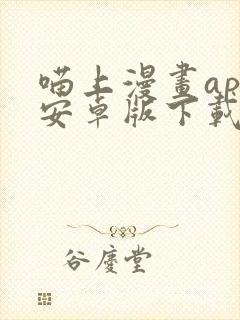 喵上漫畫ap
安卓版下載
谷慶堂